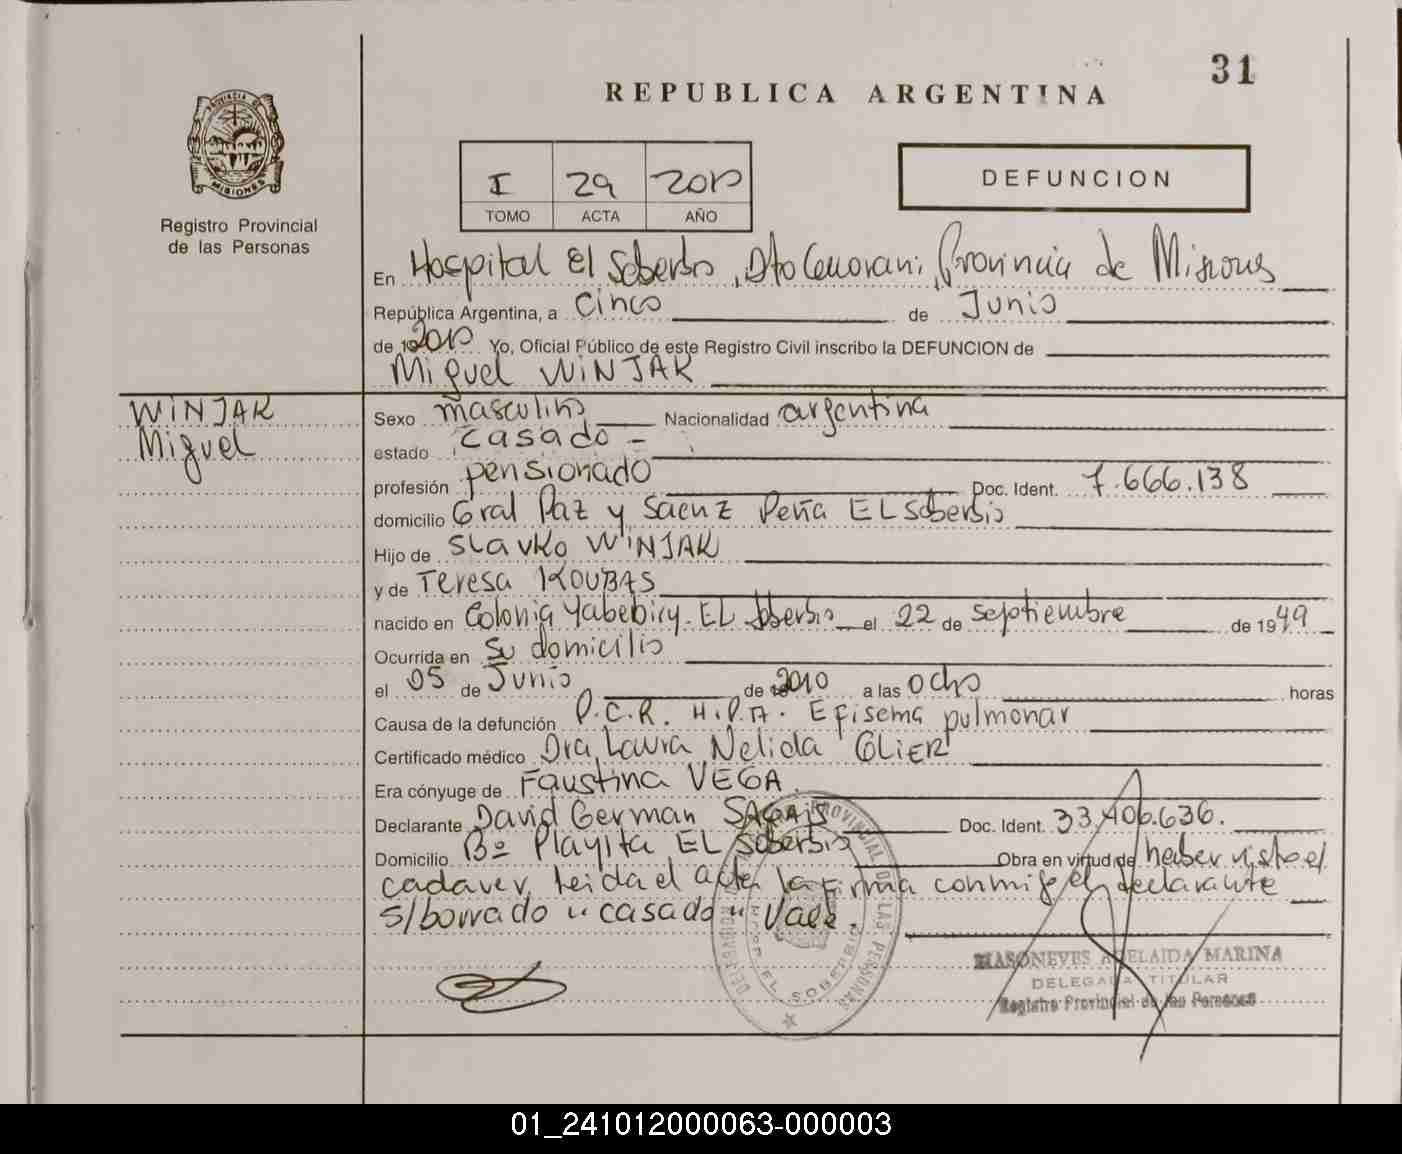 31
REPUBLICA ARGENTINA
PROVINCIA DE
MISIONES
Registro Provincial
de las Personas
I 29 2010
TOMO ACTA AÑO
DEFUNCION
En Hospital El Soberbio, Dto Guarani, Provincia de Misiones
República Argentina, a Cinco de Junio
de 19 2010 Yo, Oficial Público de este Registro Civil inscribo la DEFUNCION de
Miguel WINJAK
WINJAK
Miguel
Sexo masculino Nacionalidad argentina
estado casado -
profesión pensionado Doc. Ident. 7.666.138
domicilio Gral Paz y Saenz Peña EL Soberbio
Hijo de Slavko WINJAK
y de Teresa KOUBAS
nacido en Colonia Yabebiry - EL Soberbio el 22 de septiembre de 1949
Ocurrida en su domicilio
el 05 de Junio de 2010 a las ocho horas
Causa de la defunción P.C.R. H.P.A. Efisema pulmonar
Certificado médico Dra Laura Nelida GLIER
Era cónyuge de Faustina VEGA
Declarante David German Doc. Ident. 33.406.636.
Domicilio Bº Playita EL Soberbio Obra en virtud de haber visto el
cadaver, leida el acta, la firma conmigo el declarante
S/borrado "casado" Vale.
REGISTRO PROVINCIAL DE LAS PERSONAS
EL SOBERBIO
MASONEVES ADELAIDA MARINA
DELEGADA TITULAR
Registro Provincial de las Personas
01_241012000063-000003